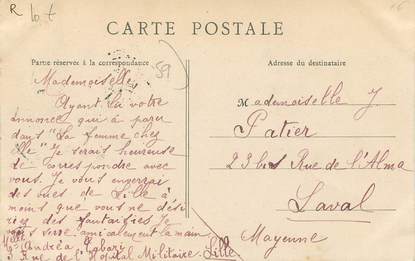 R 10 t
CARTE POSTALE
Partie réservée à la correspondance
Adresse du destinataire
59
Mademoiselle
Ayant lu votre
annonce qui à paru
dans "La femme chez
elle" Je serais heureuse
de correspondre avec
vous. Je vous enverrai
des vues de Lille à
moins que vous ne dési
riez des fantaisies Je
vous serre amicalement la main
Melle Andréa
5 Rue de l'Hôpital Militaire. Lille
Mademoiselle J
Patier
23 bis Rue de l'Alma
Laval
Mayenne